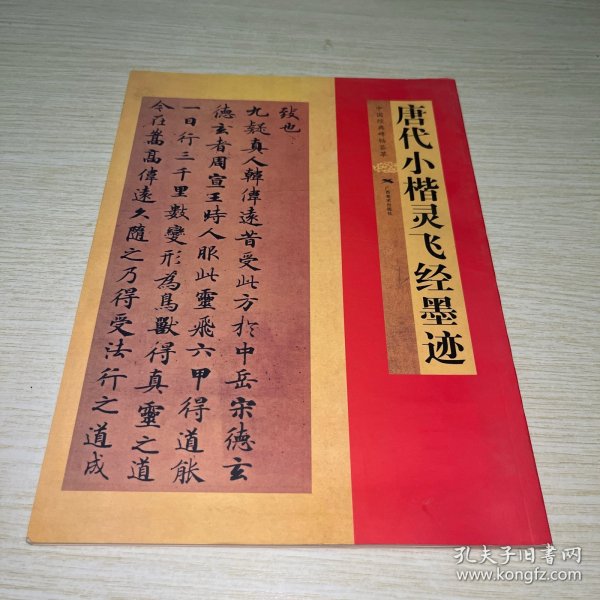 唐代小楷灵飞经墨迹
中国经典碑帖荟萃
广西美术出版社
致也
九疑真人韓偉遠昔受此方於中岳宋德玄
德玄者周宣王時人服此靈飛六甲得道能
一日行三千里數變形為鳥獸得真靈之道
今在嵩高偉遠久隨之乃得受法行之道成
孔夫子旧书网
www.kongfz.com